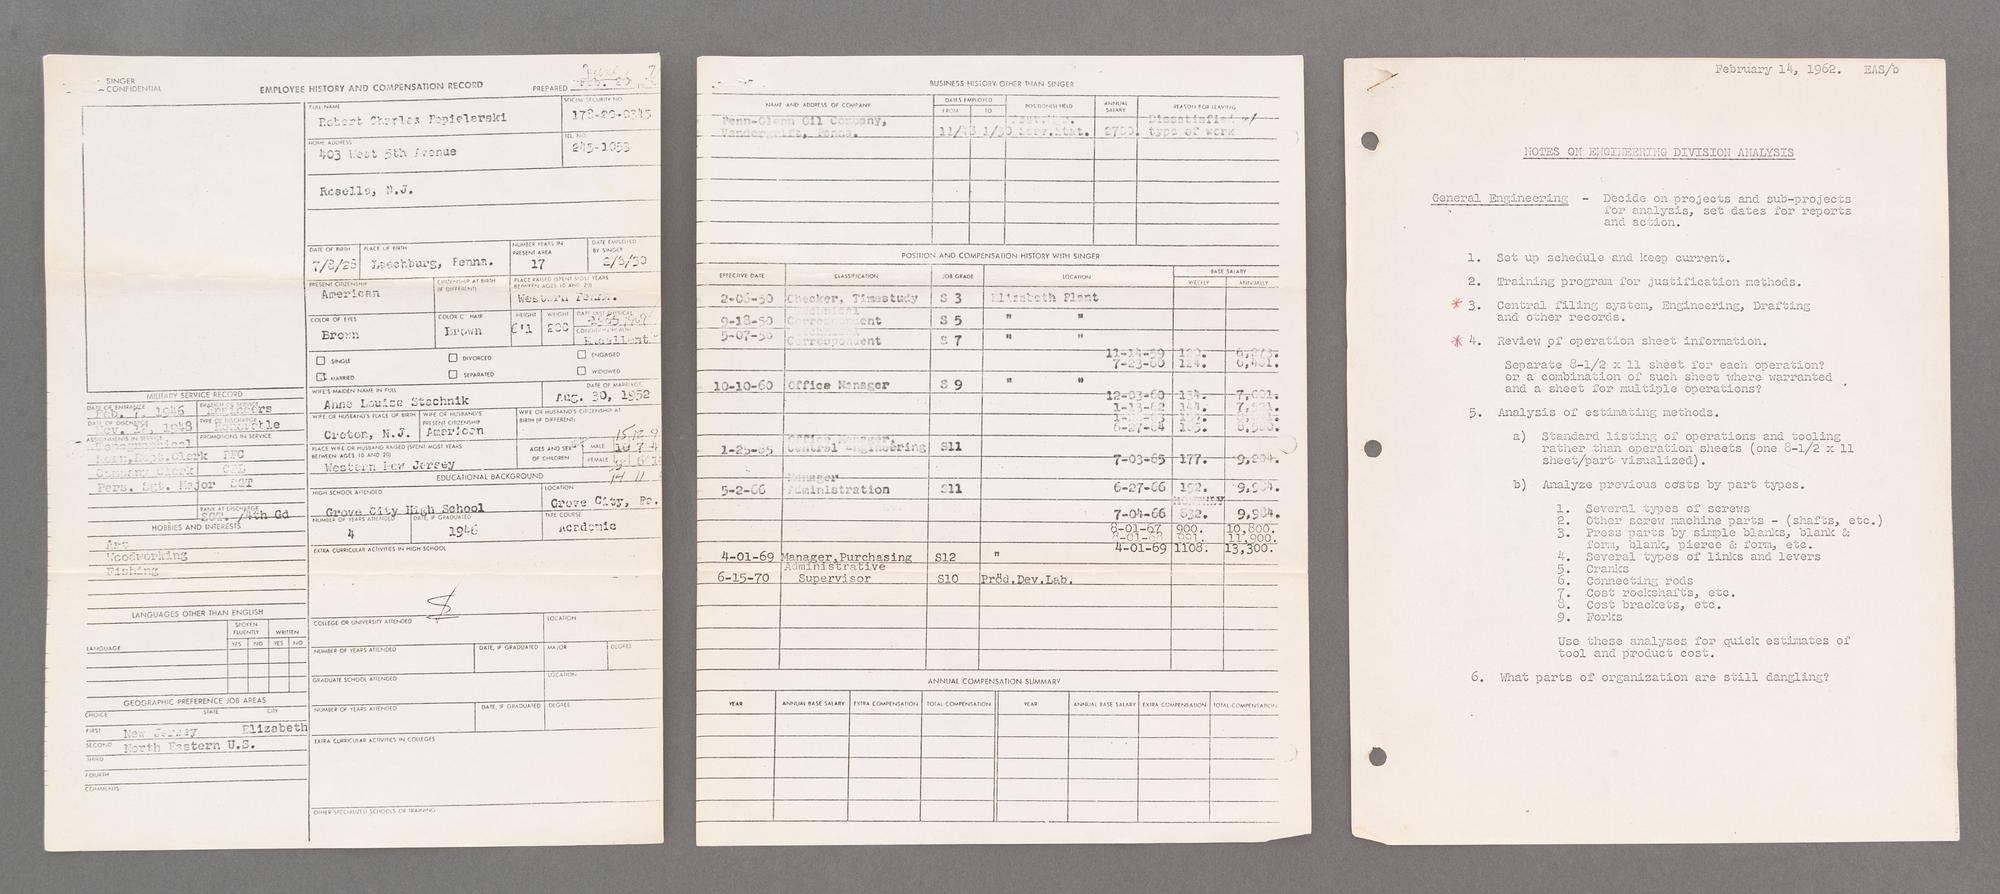 SINGER
CONFIDENTIAL
EMPLOYEE HISTORY AND COMPENSATION RECORD
PREPARED
FULL NAME
Robert Charles Popielarski
SOCIAL SECURITY NO.
178-20-0345
HOME ADDRESS
403 West 5th Avenue
TEL. NO.
245-1053
Roselle, N.J.
DATE OF BIRTH
7/8/28
PLACE OF BIRTH
Leechburg, Penna.
NUMBER YEARS IN PRESENT AREA
17
DATE EMPLOYED BY SINGER
2/6/50
PRESENT CITIZENSHIP
American
CITIZENSHIP AT BIRTH (IF DIFFERENT)
PLACE RAISED (SPENT MOST YEARS BETWEEN AGES 10 AND 20)
Western Penna.
COLOR OF EYES
Brown
COLOR OF HAIR
Brown
HEIGHT
6'1
WEIGHT
200
Excellent
SINGLE
DIVORCED
ENGAGED
MARRIED
SEPARATED
WIDOWED
WIFE'S MAIDEN NAME IN FULL
Anne Louise Stachnik
DATE OF MARRIAGE
Aug. 30, 1952
WIFE OR HUSBAND'S PLACE OF BIRTH
Croton, N.J.
WIFE OR HUSBAND'S PRESENT CITIZENSHIP
American
WIFE OR HUSBAND'S CITIZENSHIP AT BIRTH (IF DIFFERENT)
PLACE WIFE OR HUSBAND RAISED (SPENT MOST YEARS BETWEEN AGES 10 AND 20)
Western New Jersey
AGES AND SEX OF CHILDREN
MALE
FEMALE
MILITARY SERVICE RECORD
DATE OF ENTRANCE
Feb. 7, 1946
BRANCH OF SERVICE
Engineers
DATE OF DISCHARGE
Nov. 18, 1948
TYPE OF DISCHARGE
Honorable
ASSIGNMENTS IN SERVICE
PROMOTIONS IN SERVICE
PFC
Company Clerk CPL
Pers. Sgt. Major SGT
RANK AT DISCHARGE
SGT. /4th Gd
EDUCATIONAL BACKGROUND
HIGH SCHOOL ATTENDED
Grove City High School
LOCATION
Grove City, Pa.
NUMBER OF YEARS ATTENDED
4
DATE, IF GRADUATED
1946
TYPE COURSE
Academic
EXTRA CURRICULAR ACTIVITIES IN HIGH SCHOOL
HOBBIES AND INTERESTS
Art
Woodworking
Fishing
LANGUAGES OTHER THAN ENGLISH
SPOKEN FLUENTLY
WRITTEN
LANGUAGE
YES NO YES NO
COLLEGE OR UNIVERSITY ATTENDED
LOCATION
NUMBER OF YEARS ATTENDED
DATE, IF GRADUATED
MAJOR
DEGREE
GRADUATE SCHOOL ATTENDED
LOCATION
NUMBER OF YEARS ATTENDED
DATE, IF GRADUATED
DEGREE
EXTRA CURRICULAR ACTIVITIES IN COLLEGES
OTHER SPECIALIZED SCHOOLS OR TRAINING
GEOGRAPHIC PREFERENCE JOB AREAS
CHOICE STATE CITY
FIRST New Jersey Elizabeth
SECOND North Eastern U.S.
THIRD
FOURTH
COMMENTS:
BUSINESS HISTORY OTHER THAN SINGER
NAME AND ADDRESS OF COMPANY
DATES EMPLOYED
FROM TO
POSITION(S) HELD
ANNUAL SALARY
REASON FOR LEAVING
Penn-Glenn Oil Company,
Vandergrift, Penna.
11/48 1/50 Serv.Stat. 2780.
Dissatisfied w/
type of work
POSITION AND COMPENSATION HISTORY WITH SINGER
EFFECTIVE DATE CLASSIFICATION JOB GRADE LOCATION BASE SALARY
WEEKLY ANNUALLY
2-06-50 Checker, Timestudy S 3 Elizabeth Plant
9-18-50 Correspondent S 5 " "
Correspondent S 7 " "
7-23-60 124.
10-10-60 Office Manager S 9 " "
12-03-60
Office Manager,
1-25-65 Central Engineering S11
7-03-65 177. 9,204.
Manager
5-2-66 Administration S11 6-27-66 192. 9,984.
MONTHLY
7-04-66 832. 9,984.
8-01-67 900. 10,800.
8-01-68 991. 11,900.
4-01-69 Manager, Purchasing S12 " 4-01-69 1108. 13,300.
Administrative
6-15-70 Supervisor S10 Prod.Dev.Lab.
ANNUAL COMPENSATION SUMMARY
YEAR ANNUAL BASE SALARY EXTRA COMPENSATION TOTAL COMPENSATION YEAR ANNUAL BASE SALARY EXTRA COMPENSATION TOTAL COMPENSATION
February 14, 1962. EAS/b
NOTES ON ENGINEERING DIVISION ANALYSIS
General Engineering - Decide on projects and sub-projects
for analysis, set dates for reports
and action.
1. Set up schedule and keep current.
2. Training program for justification methods.
* 3. Central filing system, Engineering, Drafting
and other records.
* 4. Review of operation sheet information.
Separate 8-1/2 x 11 sheet for each operation?
or a combination of such sheet where warranted
and a sheet for multiple operations?
5. Analysis of estimating methods.
a) Standard listing of operations and tooling
rather than operation sheets (one 8-1/2 x 11
sheet/part visualized).
b) Analyze previous costs by part types.
1. Several types of screws
2. Other screw machine parts - (shafts, etc.)
3. Press parts by simple blanks, blank &
form, blank, pierce & form, etc.
4. Several types of links and levers
5. Cranks
6. Connecting rods
7. Cost rockshafts, etc.
8. Cost brackets, etc.
9. Forks
Use these analyses for quick estimates of
tool and product cost.
6. What parts of organization are still dangling?